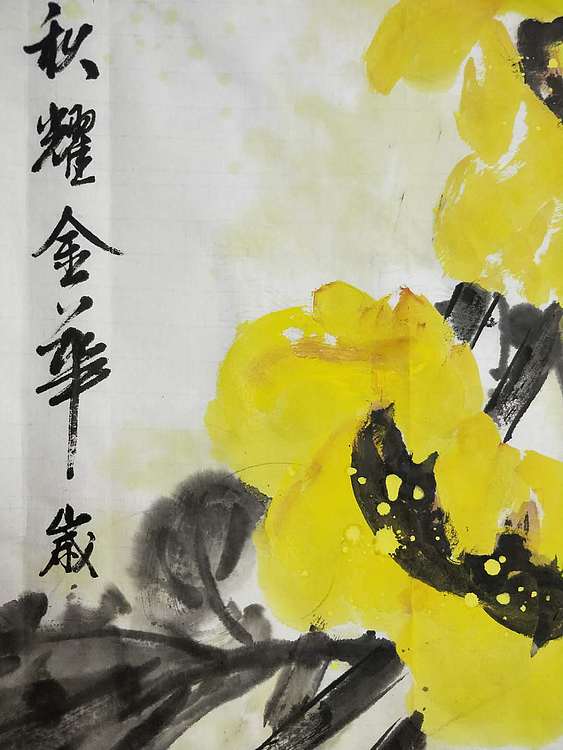 秋耀金华
歲